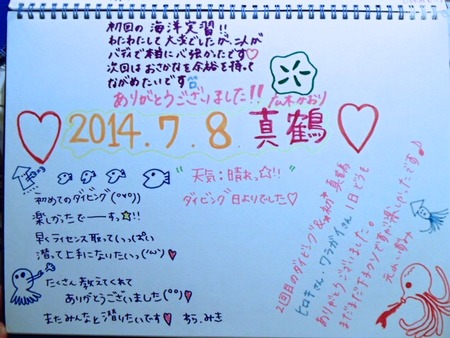 初回の海洋実習!!
わたわたして大変でしたが、二人が
バディで本当に心強かたです♡
次回はおさかなを余裕を持って
ながめたいです
ありがとうございました!!
2014.7.8 真鶴
初めてのダイビング(°∀°)
楽しかったでーーす☆!!
早くライセンス取っていっぱい
潜って上手になりたいっ(^ω^)♥
たくさん教えてくれて
ありがとうございました(°°)♥
またみんなと潜りたいです♥ ちぃ.みき
"天気:晴れ、☆!!"
ダイビング日よりでした♡
2回目のダイビング&初 真鶴
ヒロキさん・ワラガイさん 1日どうも
ありがとうございました。
まだまだ下手クソですが楽しかったです♪